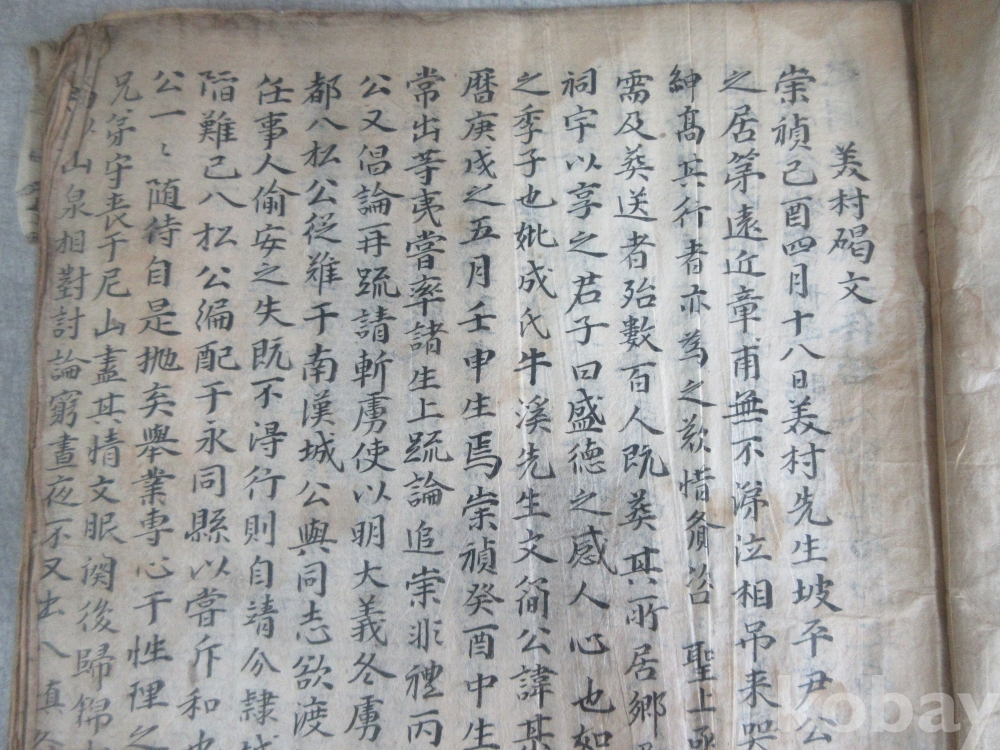 美村碣文
崇禎己酉四月十八日美村先生坡平尹公
之居第遠近章甫無不涕泣相吊来哭
紳高其行者亦爲之歎惜賻 聖上
需及葬送者殆數百人既葬其所居鄉
祠宇以享之君子曰盛德之感人心也如
之季子也妣成氏牛溪先生文簡公諱
曆庚戌之五月壬申生焉崇禎癸酉中生
常出等夷嘗率諸生上疏論追崇非禮丙
公又倡論再疏請斬虜使以明大義冬虜
都八松公從難于南漢城公與同志欲渡
任事人偷安之失既不得行則自請分隸
陷難已八松公編配于永同縣以嘗斥和
公一〻随侍自是抛矣舉業專心于性理之
兄弟守喪于尼山盡其情文服闋後歸錦
山泉相對討論窮晝夜不又出入
kobay